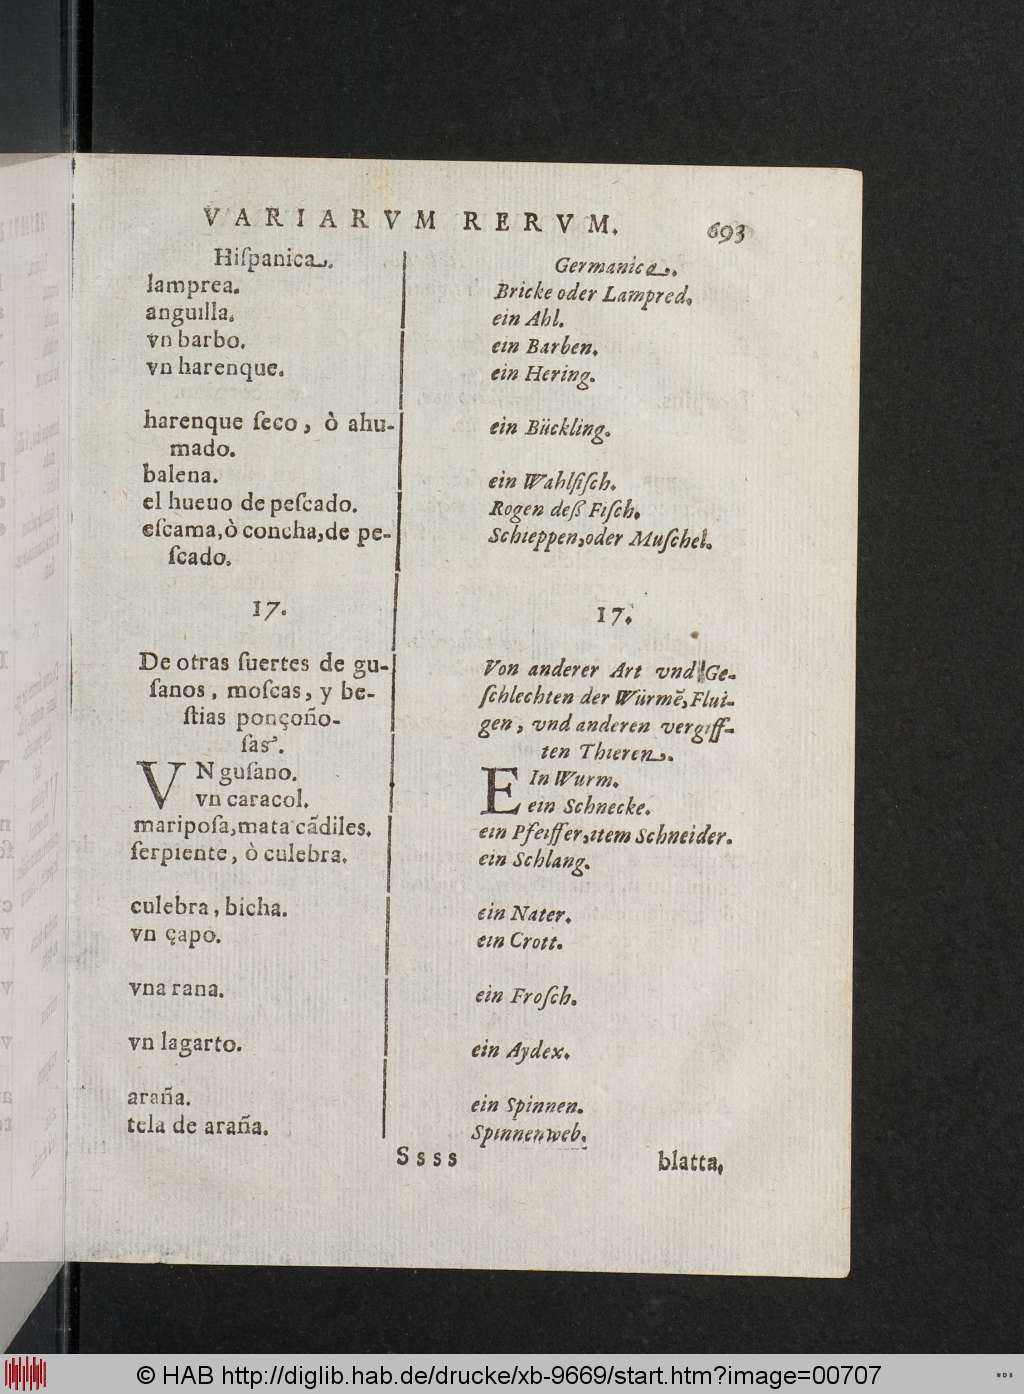 VARIARVM RERVM.
693
Hiſpanica.
lamprea.
anguilla.
vn barbo.
vn harenque.
harenque ſeco, ò ahu-
mado.
balena.
el hueuo de peſcado.
eſcama, ò concha, de pe-
ſcado.
17.
De otras ſuertes de gu-
ſanos, moſcas, y be-
ſtias ponçoño-
ſas.
VN guſano.
vn caracol.
mariposa, mata cãdiles.
ſerpiente, ò culebra.
culebra, bicha.
vn çapo.
vna rana.
vn lagarto.
araña.
tela de araña.
Germanica.
Bricke oder Lampred.
ein Ahl.
ein Barben.
ein Hering.
ein Bückling.
ein Wahlfiſch.
Rogen deß Fiſch.
Schieppen, oder Muſchel.
17.
Von anderer Art vnd Ge-
ſchlechten der Würmẽ, Flui-
gen, vnd anderen vergiff-
ten Thieren.
EIn Wurm.
ein Schnecke.
ein Pfeiffer, item Schneider.
ein Schlang.
ein Nater.
ein Crott.
ein Froſch.
ein Aydex.
ein Spinnen.
Spinnenweb.
Ssss
blatta,
© HAB http://diglib.hab.de/drucke/xb-9669/start.htm?image=00707